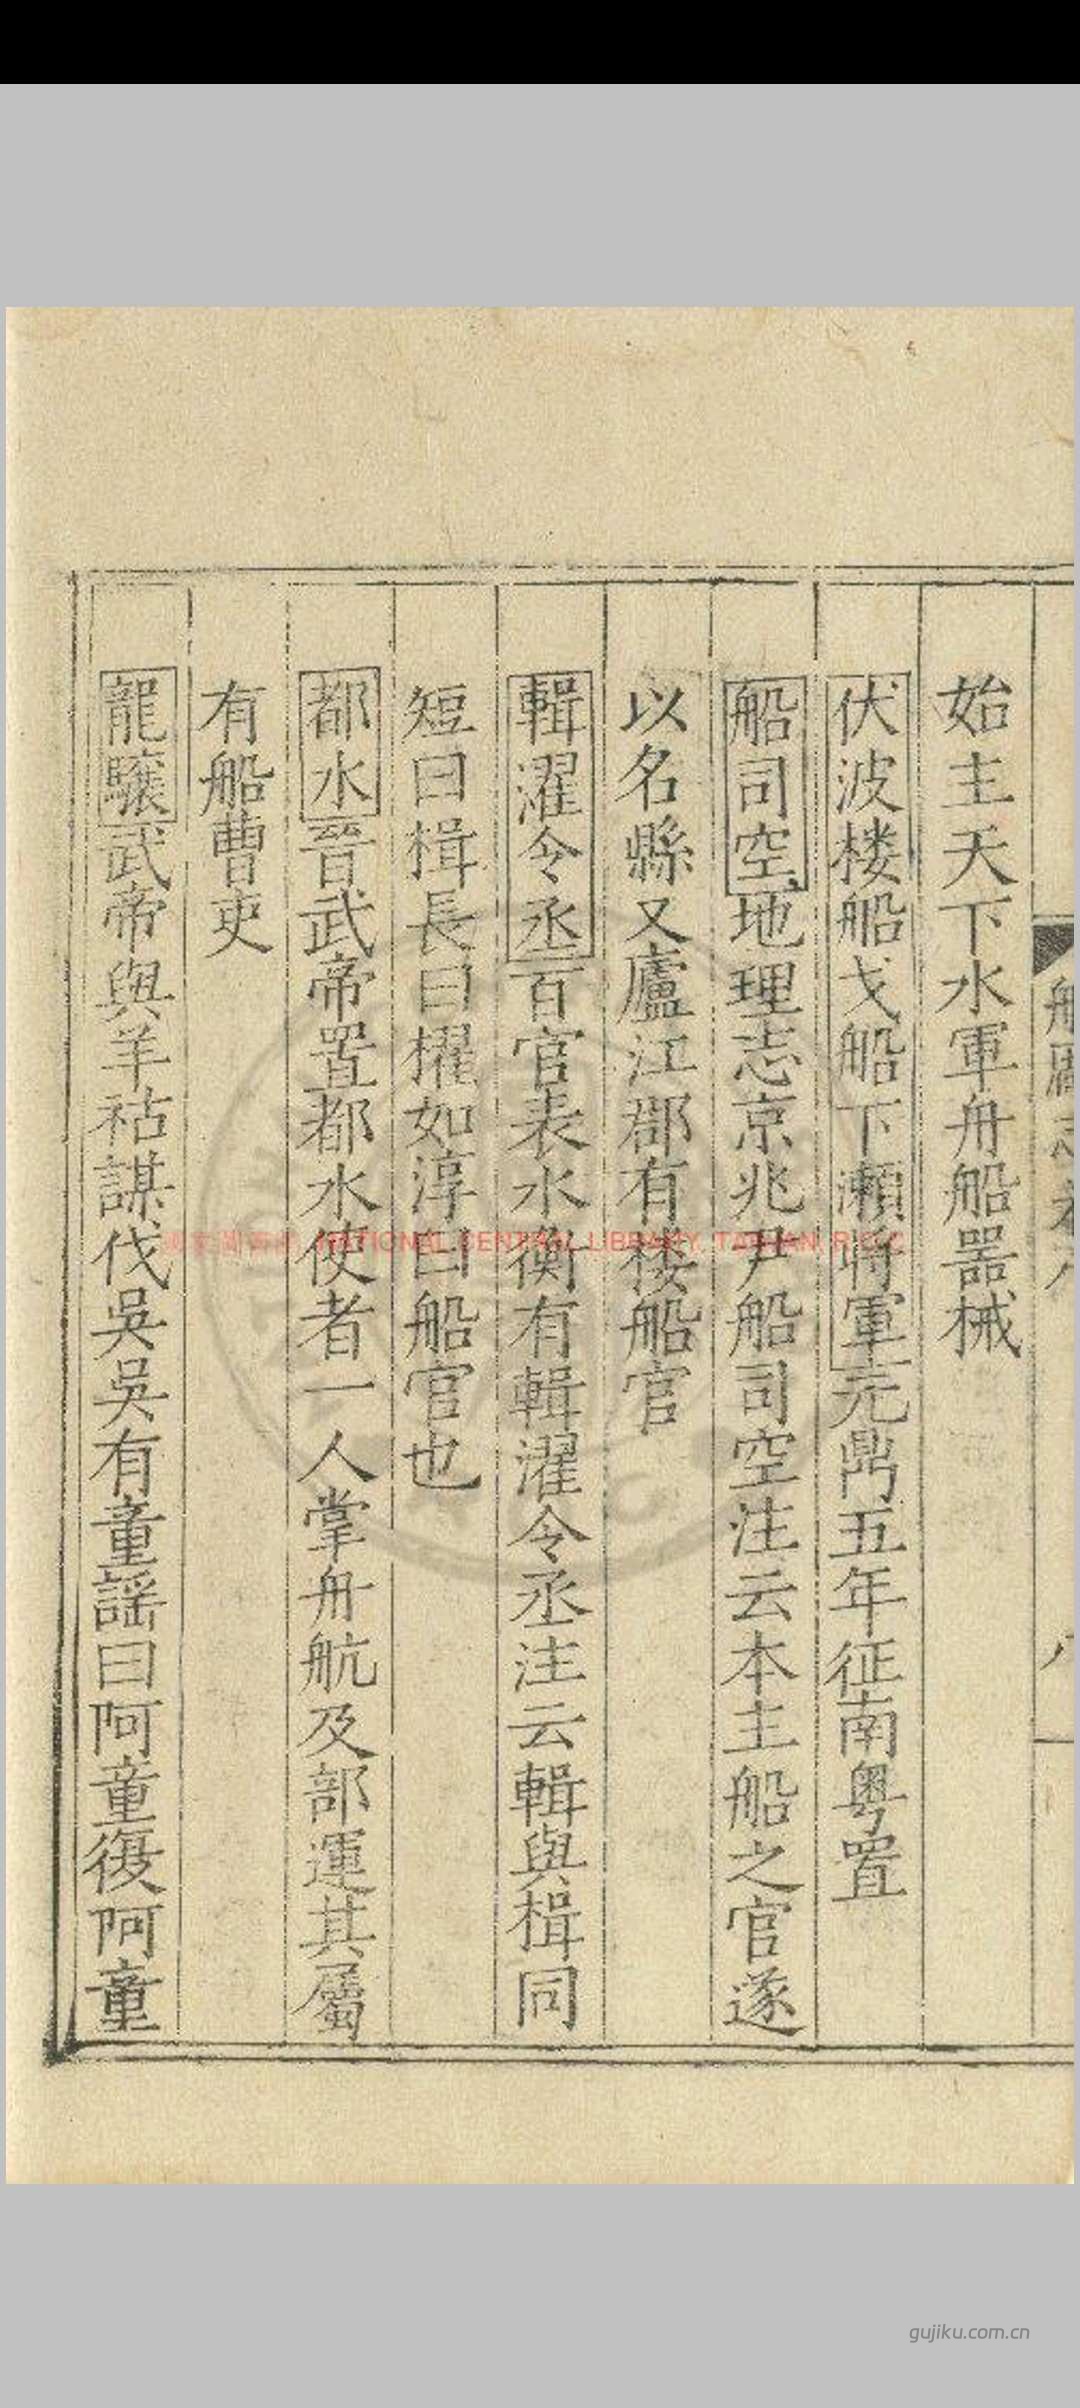 始主天下水軍舟船器械
伏波楼船戈船下瀨將軍元鼎五年征南粤置
船司空地理志京兆尹船司空注云本主船之官遂
以名縣又廬江郡有楼船官
輯濯令丞百官表水衡有輯濯令丞注云輯與楫同
短曰楫長曰櫂如淳曰船官也
都水晉武帝置都水使者一人掌舟航及部運其屬
有船曹吏
龍驤武帝與羊祜謀伐吳吳有童謡曰阿童復阿童
NATIONAL CENTRAL LIBRARY, TAIWAN, R.O.C.
gujiku.com.cn